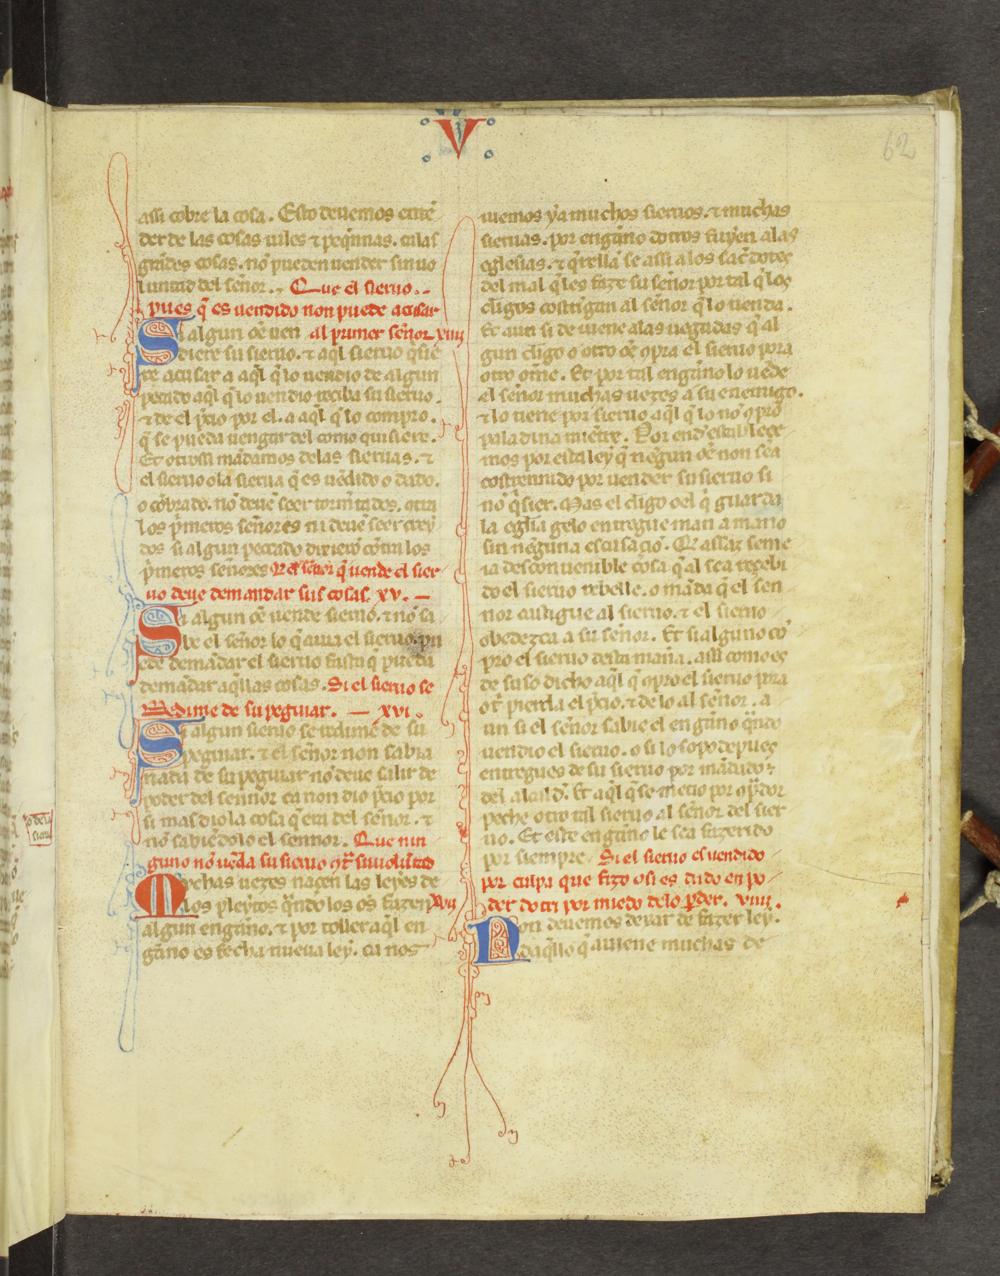 V
62
assi cobre la cosa. Esto deuemos entẽ
der de las cosas uiles ⁊ peq̃nnas. ca las
grãdes cosas. nõ pueden uender sin uo
luntad del señor. Que el sieruo
pues q̃ es uendido non puede acusar
al primer señor xiiij
Si algun oẽ uen
diere su sieruo. ⁊ aq̃l sieruo q̃sie
re acusar a aq̃l q̃ lo uendio de algun
peccado aq̃l q̃ lo uendio reciba su sieruo.
⁊ de el p̃cio por el. a aq̃l q̃ lo compro.
q̃ se pueda uengar del como quisiere.
Et otrossi mãdamos delas sieruas. ⁊
el sieruo o la sierua q̃ es uẽdido o dado.
o cõbrado. nõ deuẽ seer tormẽtados. cõtra
los p̃meros señores ni deuẽ seer crey
dos si algun peccado dixierẽ cõtra los
p̃meros señores El señor q̃ uende el sier
uo deue demandar sus cosas. xv.
Si algun oẽ uende sieruo. ⁊ nõ sa
be el señor lo q̃ auia el sieruo. pu
ede demãdar el sieruo fasta q̃ pueda
demãdar aq̃llas cosas. Si el sieruo se
Redime de su peguiar. xvi.
Si algun sieruo se redime de su
peguiar. ⁊ el señor non sabia
nada de su peguiar nõ deue salir de
poder del sennor ca non dio p̃cio por
si mas dio la cosa q̃ era del señor. ⁊
nõ sabiẽdolo el sennor. Que nin
guno nõ uẽda su sieuo
Muchas uezes naçen las leyes de
los pleytos q̃ndo los oẽs fazen xvij
algun engãno. ⁊ por toller aq̃l en
gãno es fecha nueua ley. ca nos
uiemos ya muchos sieruos. ⁊ muchas
sieruas. por engãno dotros fuyen alas
eglesias. ⁊ q̃rella se assi a los sac̃dotes
del mal q̃ les faze su señor por tal q̃ los
cligos costrĩgan al señor q̃ lo uenda.
Et aun si de uiene alas uegadas q̃ al
gun cligo o otro oẽ cõpra el sieruo pora
otro om̃e. Et por tal engãno lo uẽde
el señor muchas uezes a su enemigo.
⁊ lo tiene por sieruo aq̃l q̃ lo nõ cõpro
paladina miẽtre. Por end establece
mos por esta ley q̃ negun oẽ non sea
costrennido por uender su sieruo si
no q̃sier. Mas el cligo del q̃ guarda
la eglĩa gelo entregue man a mano
sin neguna escusaciõ. Ca assaz seme
ia desconuenible cosa q̃ al sea recebi
do el sieruo rebelle. o mãda q̃ el sen
nor castigue al sieruo. ⁊ el sieruo
obedezca a su señor. Et si alguno cõ
pro el sieruo desta mañа. assi como es
de suso dicho aq̃l q̃ cõpro el sieruo pora
ot̃ pierda el p̃cio. ⁊ de lo al señor. a
un si el señor sabie el engãno q̃ndo
uendio el sieruo. o si lo sopo depues
entregues de su sieruo por mãdado
del alcald̃. Et aq̃l q̃ se metio por cõp̃dor
peche otro tal sieruo al señor del sier
uo. Et este engãno le sea fazerido
por siempre. Si el sieruo es uendido
por culpa que fizo o si es dado en po
der dotri por miedo de lo p̃der. viiij.
Non deuemos dexar de fazer ley.
daq̃llo q̃ auiene muchas de